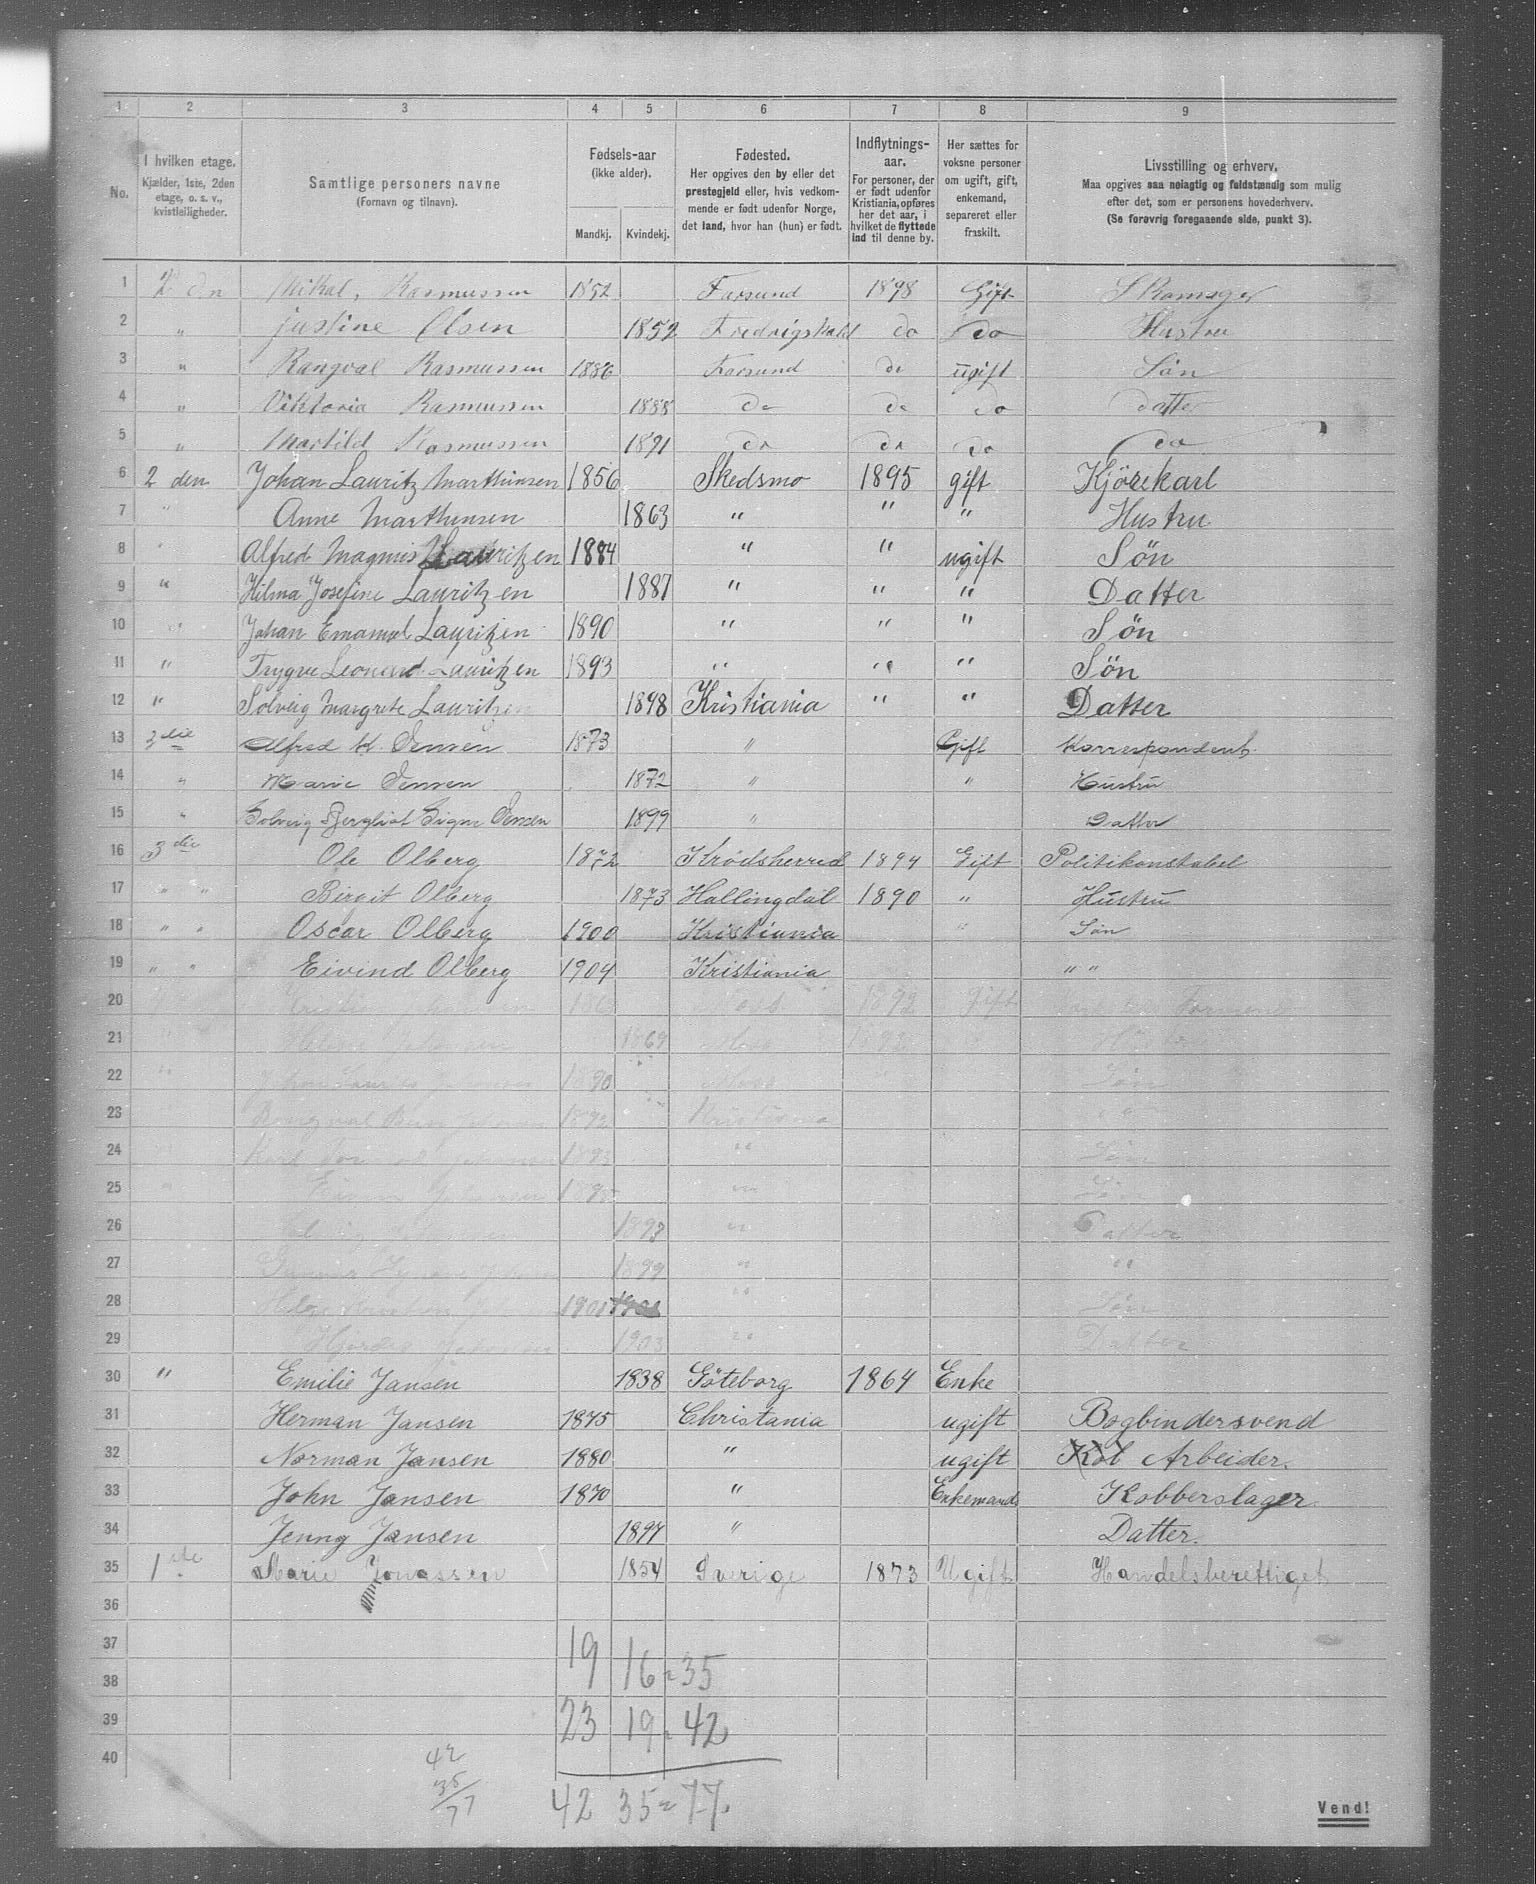 1 2 3 4 5 6 7 8 9
No.
I hvilken etage.
Kjælder, 1ste, 2den
etage, o. s. v.,
kvistleiligheder.
Samtlige personers navne
(Fornavn og tilnavn).
Fødsels-aar
(ikke alder).
Mandkj. Kvindekj.
Fødested.
Her opgives den by eller det
prestegjeld eller, hvis vedkom-
mende er født udenfor Norge,
det land, hvor han (hun) er født.
Indflytnings-
aar.
For personer, der
er født udenfor
Kristiania, opføres
her det aar, i
hvilket de flyttede
ind til denne by.
Her sættes for
voksne personer
om ugift, gift,
enkemand,
separeret eller
fraskilt.
Livsstilling og erhverv.
Maa opgives saa nøiagtig og fuldstændig som mulig
efter det, som er personens hovederhverv.
(Se forøvrig foregaaende side, punkt 3).
1 2 den Mikal, Rasmussen 1852 Farsund 1898 Gift Skomager
2 " justine Olsen 1852 Fredrigshald do do Hustru
3 " Rangval Rasmussen 1886 Farsund do ugift Søn
4 " Viktoria Rasmussen 1888 do do do datter
5 " Martild Rasmussen 1891 do do do do
6 2 den Johan Lauritz Marthinsen 1856 Skedsmo 1895 gift Kjörekarl
7 " Anne Marthinsen 1863 " " " Hustru
8 " Alfred Magnus Lauritzen 1884 " " ugift Søn
9 " Hilma Josefine Lauritzen 1887 " " " Datter
10 " Johan Emanuel Lauritzen 1890 " " " Søn
11 " Trygve Leonard Lauritzen 1893 " " " Søn
12 " Solveig Margrete Lauritzen 1898 Kristiania " " Datter
13 3die Alfred K. Jensen 1873 " Gift Korrespondent
14 " Marie Jensen 1872 " " Hustru
15 " Solveig Bergliot Signe Jensen 1899 " Datter
16 3die Ole Olberg 1872 Krödsherred 1894 Gift Politikonstabel
17 " " Birgit Olberg 1873 Hallingdal 1890 " Hustru
18 " " Oscar Olberg 1900 Kristiania " Søn
19 " " Eivind Olberg 1904 Kristiania " "
20 Johansen Moss 1892 gift Formand
21 " Johansen 1869 Moss 1892
22 " Johan Lauritz Johansen 1890 Moss Søn
23 Johansen 1892 Kristiania " "
24 Karl Johansen 1893 " Søn
25 " Johansen " Søn
26 1897 " Datter
27 1899 " "
28 Helge 1901 " Søn
29 Hjørdis Johansen 1903 " Datter
30 " Emilie Jansen 1838 Göteborg 1864 Enke
31 Herman Jansen 1875 Christania ugift Bogbindersvend
32 Norman Jansen 1880 " ugift Kob Arbeider.
33 John Jansen 1870 " Enkemand Kobberslager.
34 Jenny Jansen 1897 " Datter.
35 1ste Marie Jonassen 1854 Sverige 1873 Ugift Handelsberettiget
36
37 19 16 = 35
38
39 23 19 = 42
40
42
35
77
42 35 = 77.
Vend!